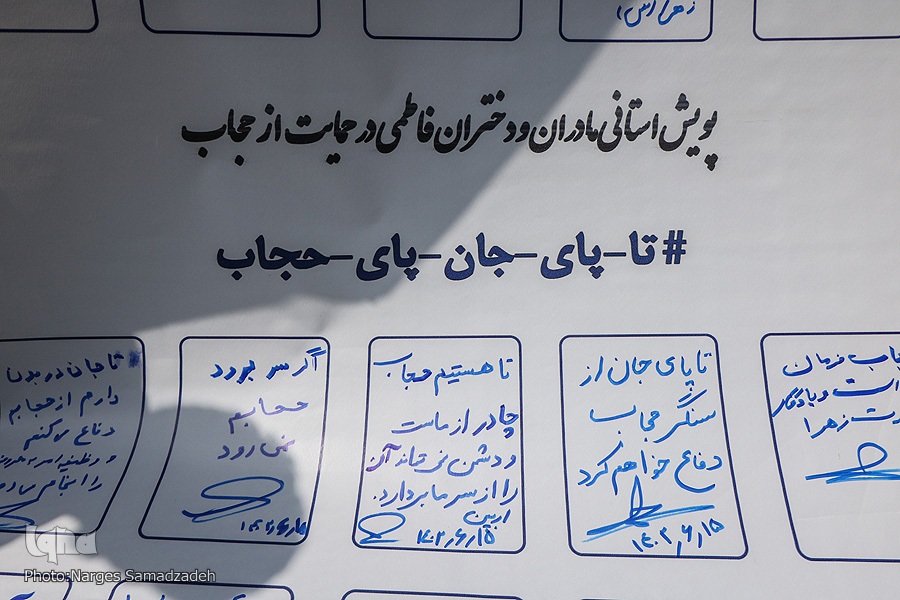 زهرا
پویش استانی مادران و دختران فاطمی در حمایت از حجاب
#تا-پای-جان-پای-حجاب
حجاب فرمان
است و یادگار
زهرا
تا پای جان از
سنگر حجاب
دفاع خواهم کرد
۱۴۰۲٫۶٫۱۵
تا هستیم حجاب
چادر از ماست
و دشمن نمی‌تواند آن
را از سر ما بردارد.
۱۴۰۲٫۶٫۱۵
اگر سر برود
حجابم
نمی رود
تا جان در بدن
دارم از حجابم
دفاع می‌کنم
را انجام
iqna
Photo:Narges Samadzadeh